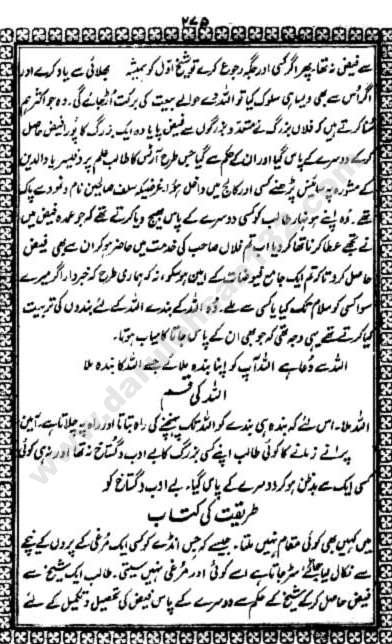 ۲۷۵
سے فیض نہ تھا۔ پھر اگر کسی اور جگہ رجوع کرے تو شیخ اول کو ہمیشہ بھلائی سے یاد کرے اور
اگر اُس سے بھی ویسا ہی سلوک کیا تو اللہ بڑے حوالے بیعت کی برکت اُٹھ جائے گی۔ وہ جو اکثر ہم
سُنا کرتے ہیں کہ فلاں بزرگ نے متعدد بزرگوں سے فیض پایا وہ ایک بزرگ کا پورا فیض حاصل
کر کے دوسرے کے پاس گیا اور ان کے حکم سے گیا جس طرح آرٹس کا طالب علم پروفیسر یا والدین
کے مشورہ پہ سائنس پڑھنے کسی اور کالج میں داخل ہو، کیونکہ سلف صالحین نام و نمود سے پاک
تھے۔ وہ اپنے ہونہار طالب کو کسی دوسرے کے پاس بھیج دیا کرتے تھے کہ جو عمدہ فیض میں
نے تجھے عطا کرنا تھا کر دیا اب تم فلاں صاحب کی خدمت میں حاضر ہو کر ان سے بھی فیض
حاصل کرو تاکہ تم ایک جامع فیوضات کے امین ہو سکو، نہ کہ ہماری طرح کہ خبردار اگر میرے
سوا کسی کو سلام تک کیا یا کسی سے ملے۔ وہ اللہ کے بندے اللہ کے لئے بندوں کی تربیت
کیا کرتے تھے یہی وجہ تھی کہ جو بھی ان کے پاس جاتا کامیاب ہوتا۔
اللہ سے دُعا ہے اللہ آپ کو اپنا بندہ ملائے جسے اللہ کا بندہ ملا
اللہ کی قسم
اللہ ملا۔ اس لئے کہ بندہ ہی بندے کو اللہ تک پہنچنے کی راہ بتاتا اور راہ پہ چلاتا ہے۔ آمین
پرانے زمانے کا کوئی طالب اپنے کسی بزرگ کا بے ادب و گستاخ نہ تھا اور نہ ہی کوئی
کسی ایک سے بدظن ہو کر دوسرے کے پاس گیا۔ بے ادب و گستاخ کو
طریقت کی کتاب
میں کہیں بھی کوئی مقام نہیں ملتا۔ جیسے کہ جس انڈے کو کسی ایک مُرغی کے پروں کے نیچے
سے نکالی لیا جائے سڑ جاتا ہے اسے کوئی اور مُرغی نہیں سیتی۔ طالب ایک شیخ سے
فیض حاصل کر کے شیخ کے حکم سے دوسرے کے پاس فیض کی تحصیل و تکمیل کے لئے